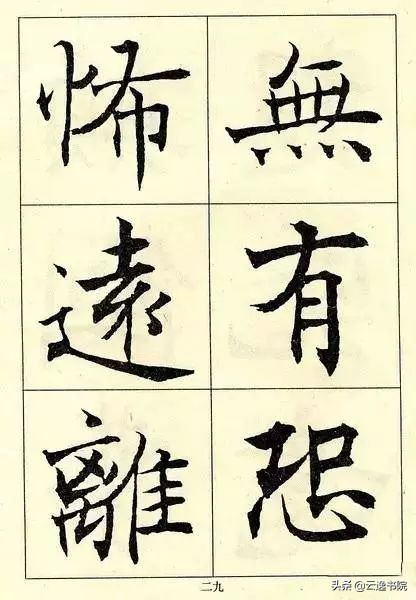 無有恐
怖遠離
二九
头条@云逸书院